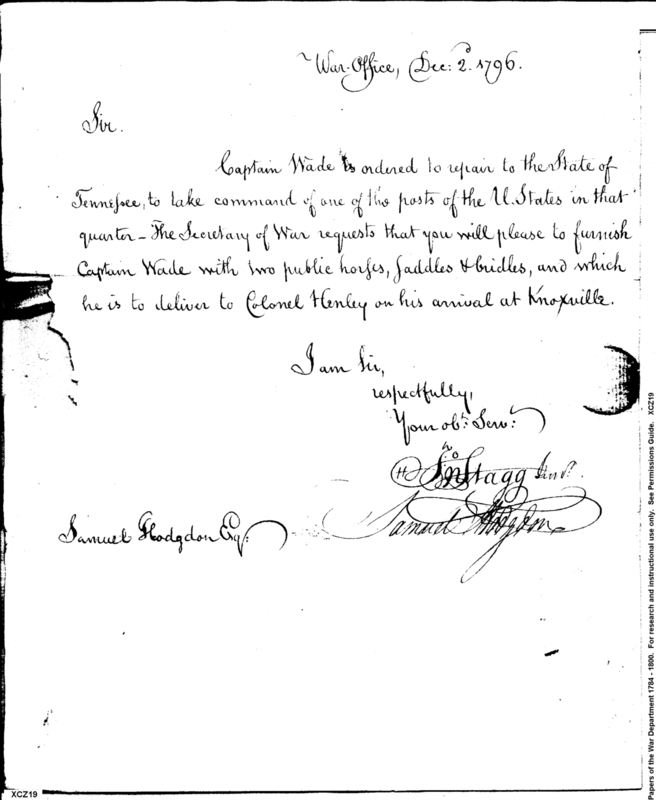 War-Office, Dec: 2d. 1796.
Sir.
Captain Wade is ordered to repair to the State of
Tennessee, to take command of one of the posts of the U. States in that
quarter – The Secretary of War requests that you will please to furnish
Captain Wade with two public horses, saddles & bridles, and which
he is to deliver to Colonel Henley on his arrival at Knoxville.
I am Sir,
respectfully,
Your obt. Servt.
Jno Stagg Junr.
Samuel Hodgdon
Samuel Hodgdon Esq:
XCZ19
Papers of the War Department 1784 - 1800. For research and instructional use only. See Permissions Guide. XCZ19